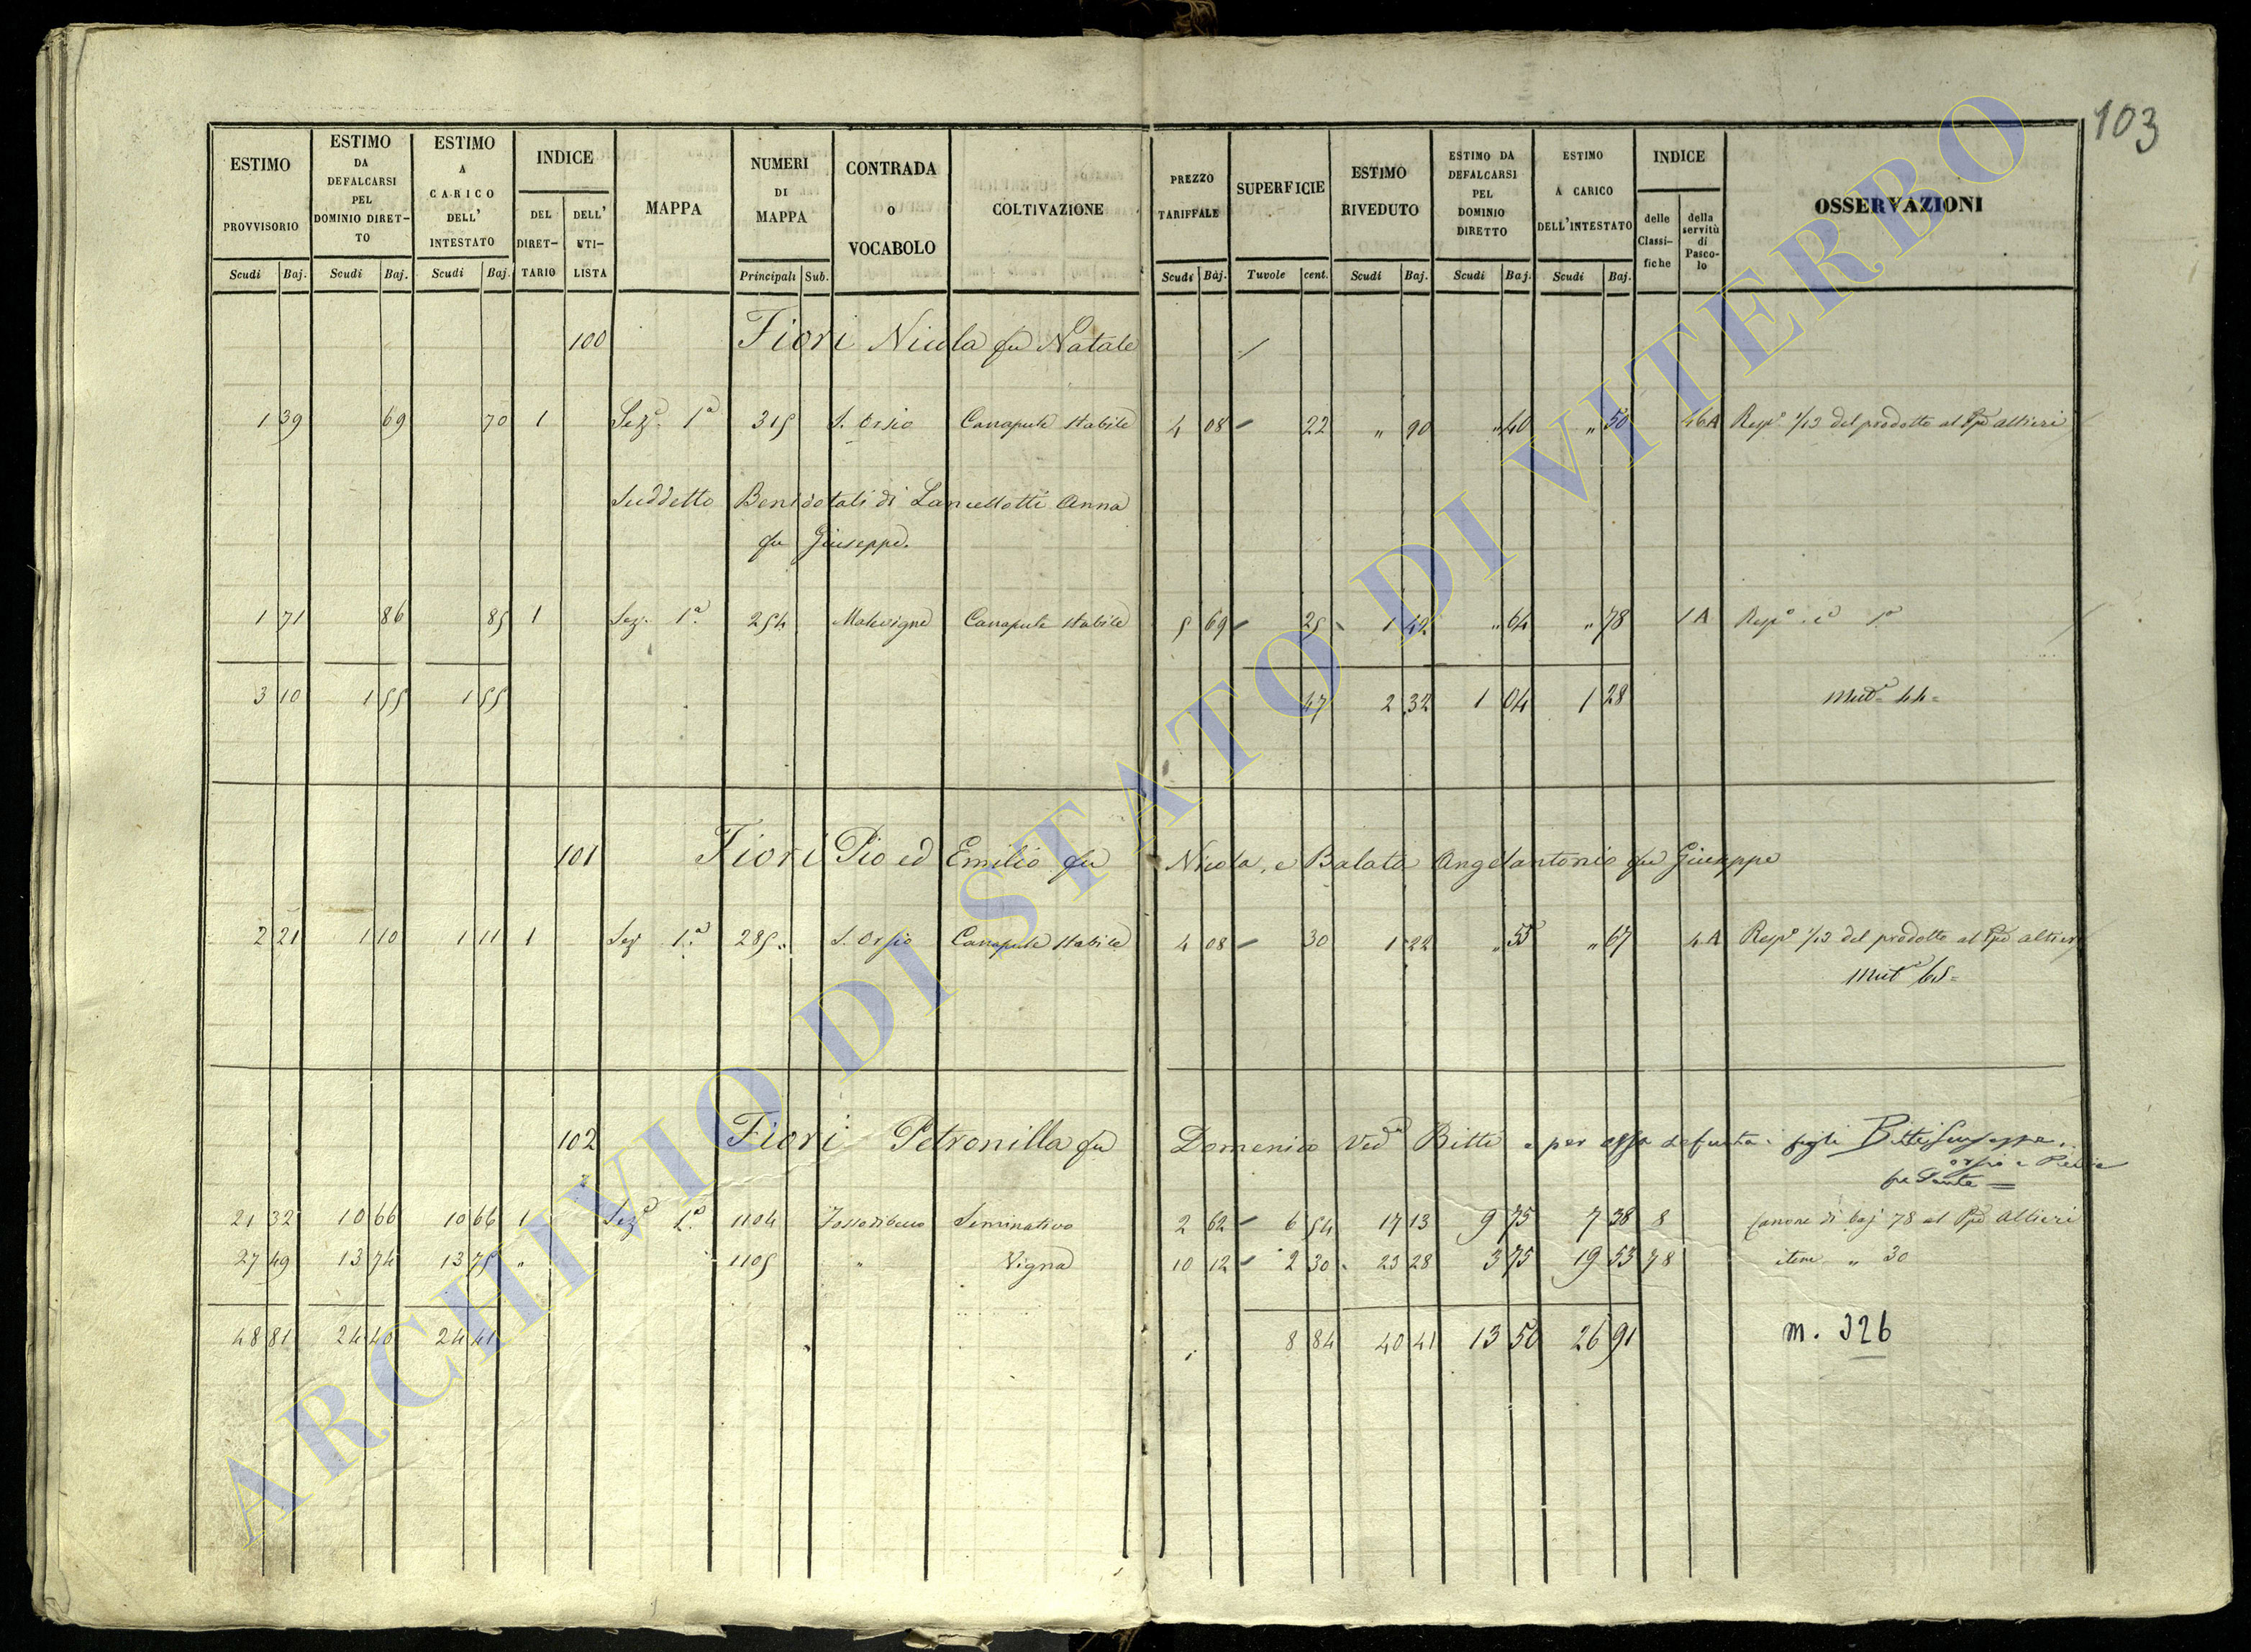 103
ESTIMO PROVVISORIO Scudi Baj.
ESTIMO DA DEFALCARSI PEL DOMINIO DIRETTO Scudi Baj.
ESTIMO A CARICO DELL' INTESTATO Scudi Baj.
INDICE DEL DIRETTARIO DELL' UTILISTA
MAPPA
NUMERI DI MAPPA Principali Sub.
CONTRADA O VOCABOLO
COLTIVAZIONE
PREZZO TARIFFALE Scudi Baj.
SUPERFICIE Tavole cent.
ESTIMO RIVEDUTO Scudi Baj.
ESTIMO DA DEFALCARSI PEL DOMINIO DIRETTO Scudi Baj.
ESTIMO A CARICO DELL'INTESTATO Scudi Baj.
INDICE delle Classifiche della servitù di Pascolo
OSSERVAZIONI
100 Fiori Nicola fu Natale
1 39 69 70 1 Sez.e 1a 315 S. Orsio Canapule stabile 4 08 22 " 90 " 40 " 50 46A Resp.e 1/13 del prodotto al Ppe Altieri
Suddetto Beni dotali di Lancellotti Anna
fu Giuseppe.
1 71 86 85 1 Sez. 1a 254 Malevigne Canapule stabile 5 69 25 1 42 " 64 " 78 1A
3 10 1 55 1 55 47 2 32 1 04 1 28 Mut.e 44
101 Fiori Pio ed Emilio fu Nicola, e Balata Angelantonio fu Giuseppe
2 21 1 10 1 11 1 Sez 1a 285 S. Orsio Canapule stabile 4 08 30 1 22 " 55 " 67 4A Resp.e 1/13 del prodotto al Ppe Altieri
Mut.e
102 Fiori Petronilla fu Domenico Ved.a Bitti e per essa defunta i figli Bitti Giuseppe,
fu Sante
21 32 10 66 10 66 1 Sez.e 2a 1104 Seminativo 2 62 6 54 17 13 9 75 7 38 8 Canone di baj 78 al Ppe Altieri
27 49 13 74 13 75 " 1105 " Vigna 10 12 2 30 23 28 3 75 19 53 78 item " 30
48 81 24 40 24 41 8 84 40 41 13 50 26 91 m. 326
ARCHIVIO DI STATO DI VITERBO